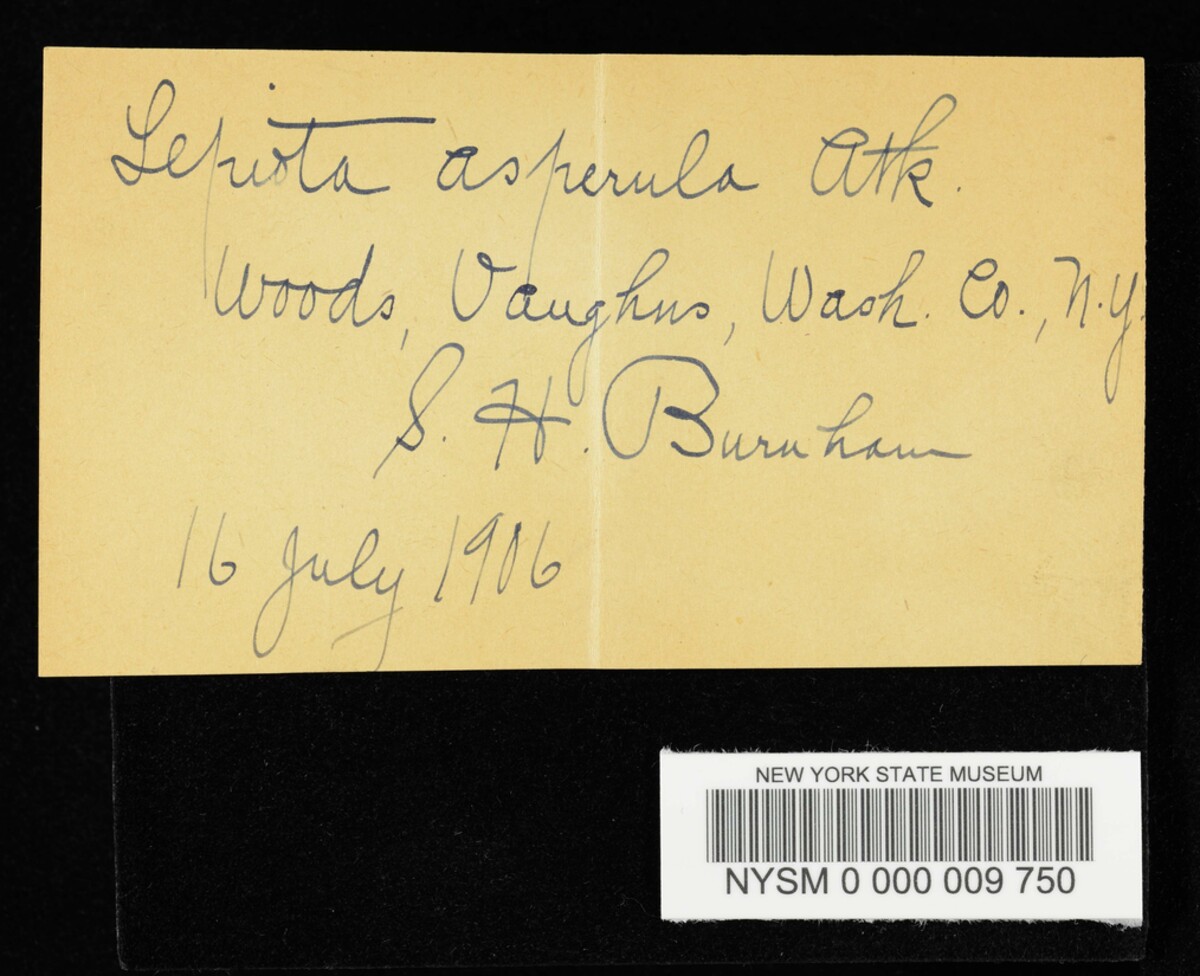 Lepiota asperula Atk.
Woods, Vaughns, Wash. Co., N.Y.
S. H. Burnham
16 July 1906
NEW YORK STATE MUSEUM
NYSM 0 000 009 750